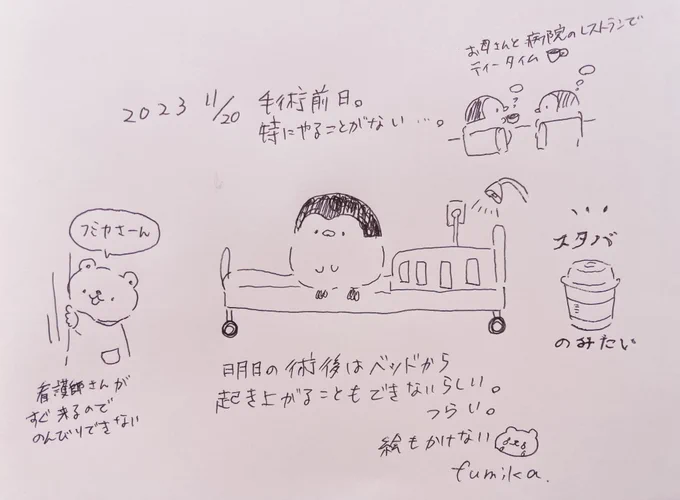 2023 11/20 手術前日。
特にやることがない…。
お母さんと病院のレストランで
ティータイム
フミカさーん
看護師さんが
すぐ来るので
のんびりできない
スタバ
のみたい
明日の術後はベッドから
起き上がることもできないらしい。
つらい。
絵もかけない
fumika.